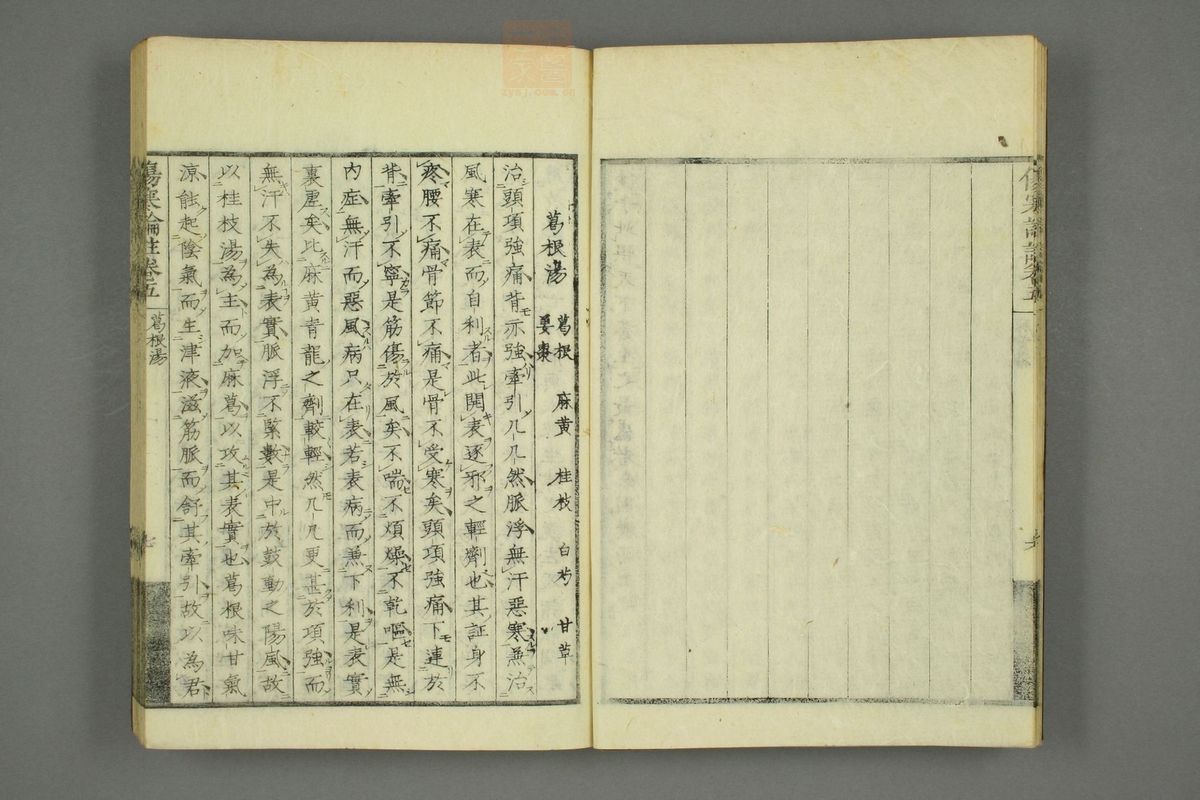 葛根湯 葛根 麻黄 桂枝 白芍 甘草
姜棗
治頭項強痛背亦強牽引几几然脈浮無汗惡寒兼治
風寒在表而自利者此開表逐邪之輕劑也其証身不
疼腰不痛骨節不痛是骨不受寒矣頭項強痛下連於
背牽引不寧是筋傷於風矣不喘不煩燥不乾嘔是無
内症無汗而惡風病只在表若表病而兼下利是表實
裏虛矣比麻黄青龍之劑較輕然几几更甚於項強而
無汗不失為表實脈浮不緊數是中於鼓動之陽風故
以桂枝湯為主而加麻葛以攻其表實也葛根味甘氣
涼能起陰氣而生津液滋筋脈而舒其牽引故以為君
傷寒論註卷五
葛根湯
七
zysj.com.cn